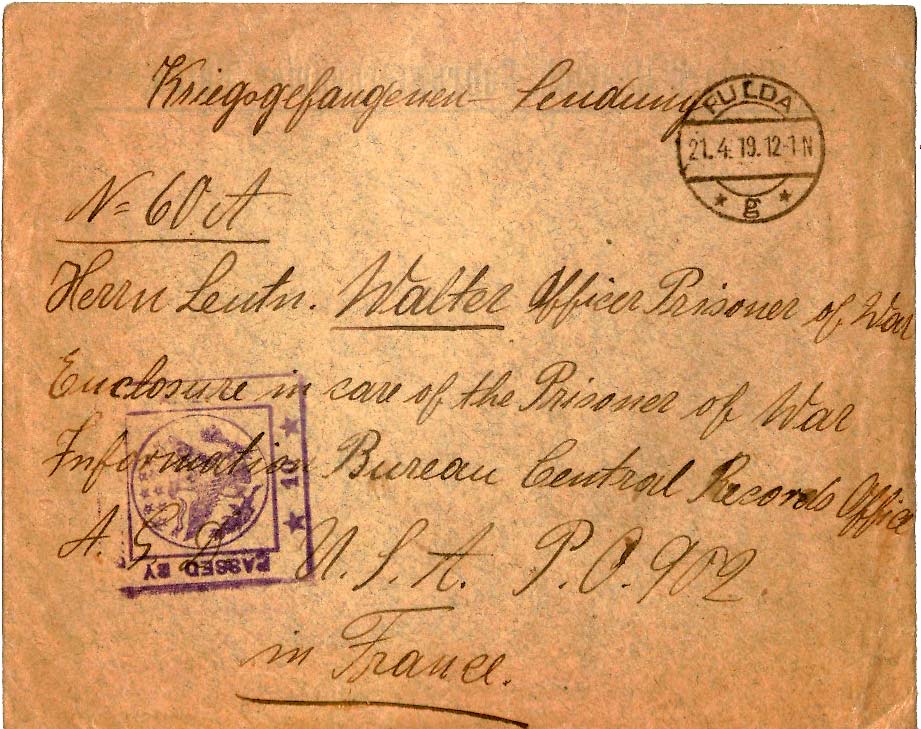 Kriegsgefangenen- Sendung
FULDA
21.4.19.12-1N
* g *
N= 60.A
Herrn Leutn. Walter Officer Prisoner of War
Enclosure in care of the Prisoner of War
Information Bureau Central Records Office
A. E. F. U. S. A. P. O. 902
in France.
PASSED BY
★ 10 ★